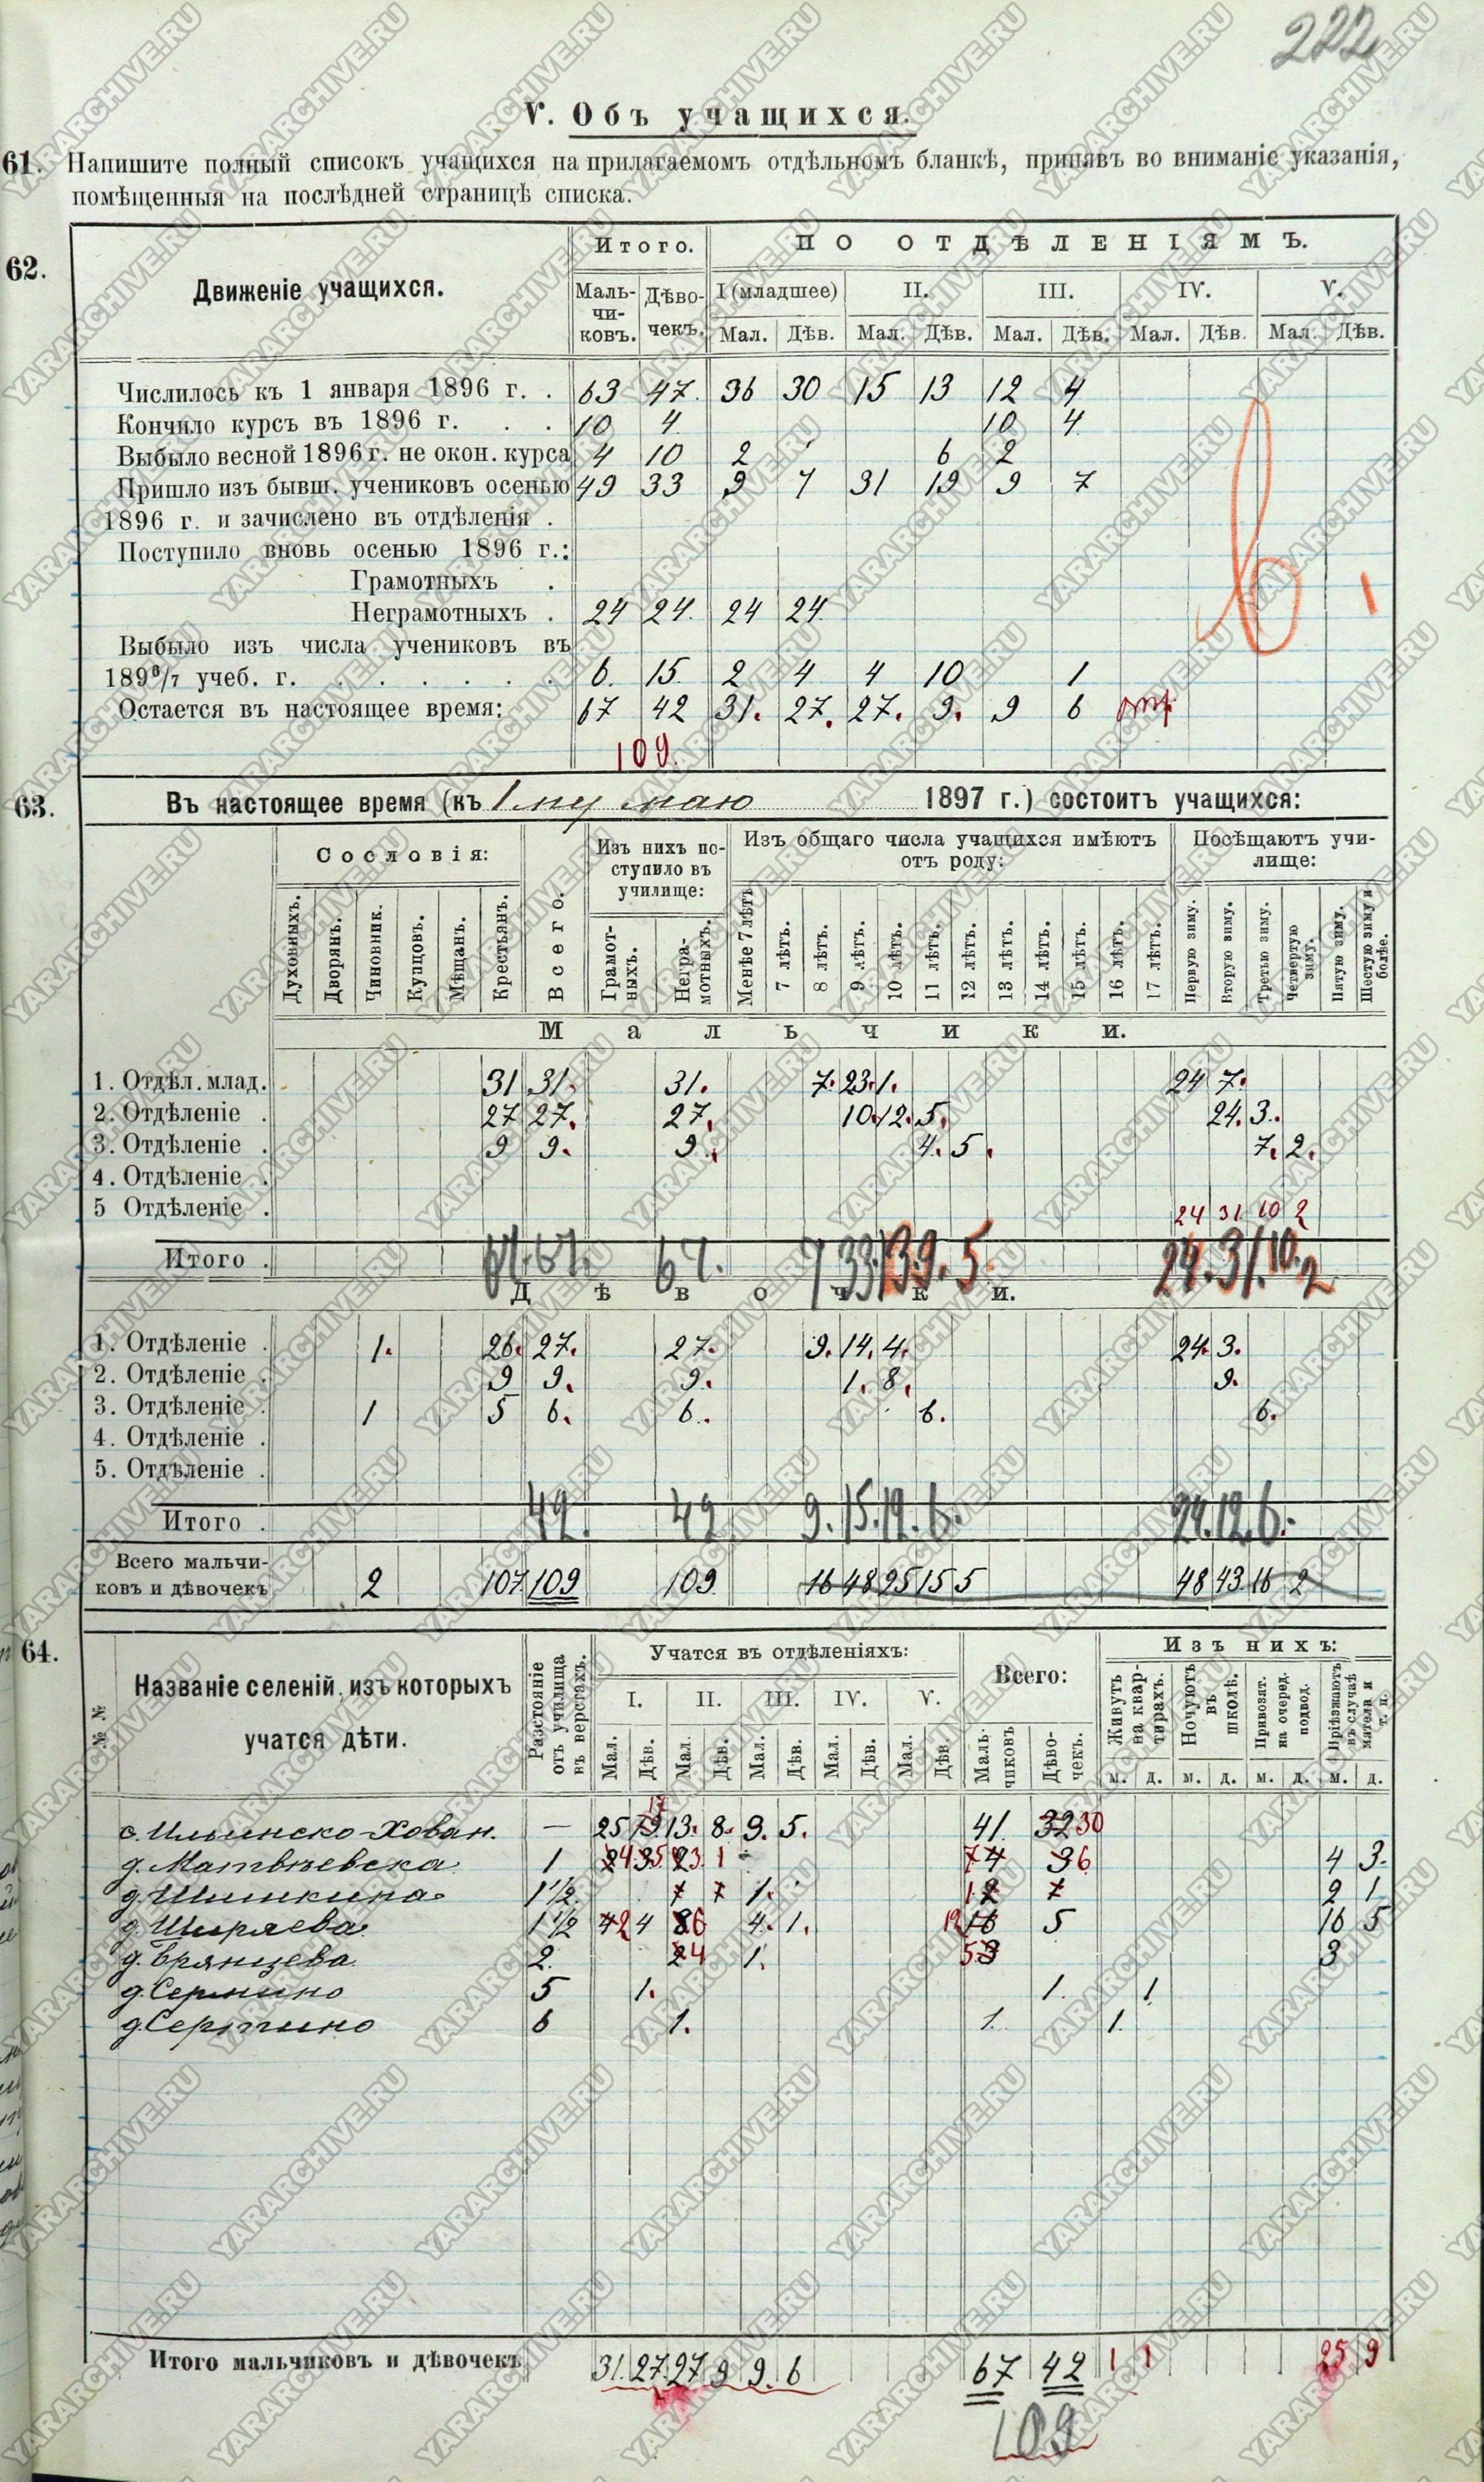 222
V. Объ учащихся.
61. Напишите полный списокъ учащихся на прилагаемомъ отдѣльномъ бланкѣ, принявъ во вниманіе указанія,
помѣщенныя на послѣдней страницѣ списка.
62.
Движеніе учащихся.
Итого. ПО ОТДѢЛЕНІЯМЪ.
Мальчиковъ. Дѣвочекъ. I (младшее) II. III. IV. V.
Мал. Дѣв. Мал. Дѣв. Мал. Дѣв. Мал. Дѣв. Мал. Дѣв.
Числилось къ 1 января 1896 г. . 63 47. 36 30 15 13 12 4
Кончило курсъ въ 1896 г. . . 10 4 10 4
Выбыло весной 1896 г. не окон. курса 4 10 2 6 2
Пришло изъ бывш. учениковъ осенью 49 33 9 7 31 19 9 7
1896 г. и зачислено въ отдѣленія .
Поступило вновь осенью 1896 г.:
Грамотныхъ .
Неграмотныхъ . 24 24. 24 24.
Выбыло изъ числа учениковъ въ
1896/7 учеб. г. . . . . . . 6. 15. 2 4 4 10 1
Остается въ настоящее время: 67 42 31. 27. 27. 9. 9 6
109.
63. Въ настоящее время (къ 1му маю 1897 г.) состоитъ учащихся:
Сословія: Всего. Изъ нихъ поступило въ училище: Изъ общаго числа учащихся имѣютъ отъ роду: Посѣщаютъ училище:
Духовныхъ. Дворянъ. Чиновник. Купцовъ. Мѣщанъ. Крестьянъ. Грамотныхъ. Неграмотныхъ. Менѣе 7 лѣтъ 7 лѣтъ. 8 лѣтъ. 9 лѣтъ. 10 лѣтъ. 11 лѣтъ. 12 лѣтъ. 13 лѣтъ. 14 лѣтъ. 15 лѣтъ. 16 лѣтъ. 17 лѣтъ. Первую зиму. Вторую зиму. Третью зиму. Четвертую зиму. Пятую зиму. Шестую зиму и болѣе.
Мальчики.
1. Отдѣл. млад. 31 31. 31. 7. 23. 1. 24 7.
2. Отдѣленіе . 27 27. 27. 10. 12. 5. 24. 3.
3. Отдѣленіе . 9 9. 9. 4. 5. 7. 2.
4. Отдѣленіе .
5 Отдѣленіе . 24 31 10 2
Итого . 67. 67. 67. 7 33. 13 9. 5. 24. 31. 10. 2
Дѣвочки.
1. Отдѣленіе . 1. 26. 27. 27. 9. 14. 4. 24. 3.
2. Отдѣленіе . 9 9. 9. 1. 8. 9.
3. Отдѣленіе . 1 5 6. 6. 6. 6.
4. Отдѣленіе .
5. Отдѣленіе .
Итого . 42. 42 9. 15. 12. 6. 24. 12. 6.
Всего мальчиковъ и дѣвочекъ 2 107 109 109. 16 48 25 15 5 48 43 16 2
64.
№№ Названіе селеній, изъ которыхъ учатся дѣти. Разстояніе отъ училища въ верстахъ. Учатся въ отдѣленіяхъ: Всего: Изъ нихъ:
I. II. III. IV. V. Мальчиковъ Дѣвочекъ. Живутъ на квартирахъ. Ночуютъ въ школѣ. Привозят. на очеред. подвод. Пріѣзжаютъ въ случаѣ мятела и т. п.
Мал. Дѣв. Мал. Дѣв. Мал. Дѣв. Мал. Дѣв. Мал. Дѣв. м. д. м. д. м. д. м. д.
с. Ильинско-Хован. — 25 17 13. 8. 9. 5. 41. 32 30
д. Матвѣевска 1 4 3 1 7 6 4 3.
д. Шишкина 1½ 1. 2 1
д. Ширяева 1½ 2 4 6 4. 1. 12 5 16 5
д. Брянцева 2. 4 1. 5 3
д. Сермино 5 1. 1. 1
д. Сертино 6 1. 1. 1.
Итого мальчиковъ и дѣвочекъ 31. 27. 27 9 9. 6 67 42 1 1 25 9
109
YARARCHIVE.RU